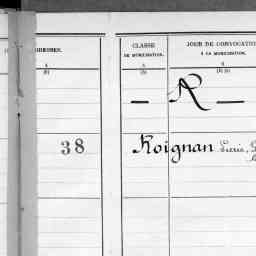 CLASSE
DE MOBILISATION.
JOUR DE CONVOCATION
À LA MOBILISATION.
4
(5)
5
(5)
6
(5)
— R —
38
Roignan Pierre,